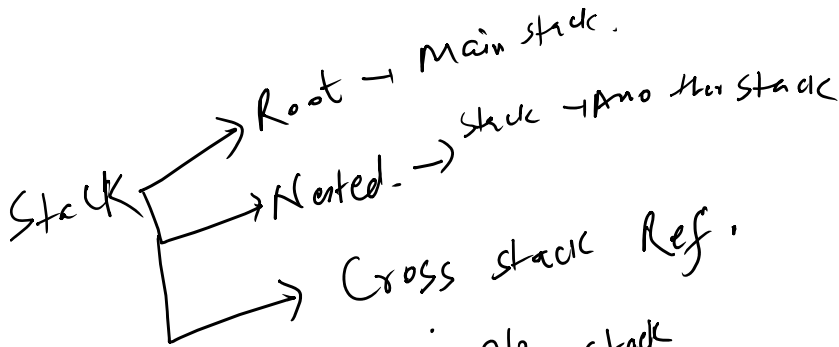 Stack
Root → Main stack.
Nested. → stack → Another stack
Cross stack Ref.
stack